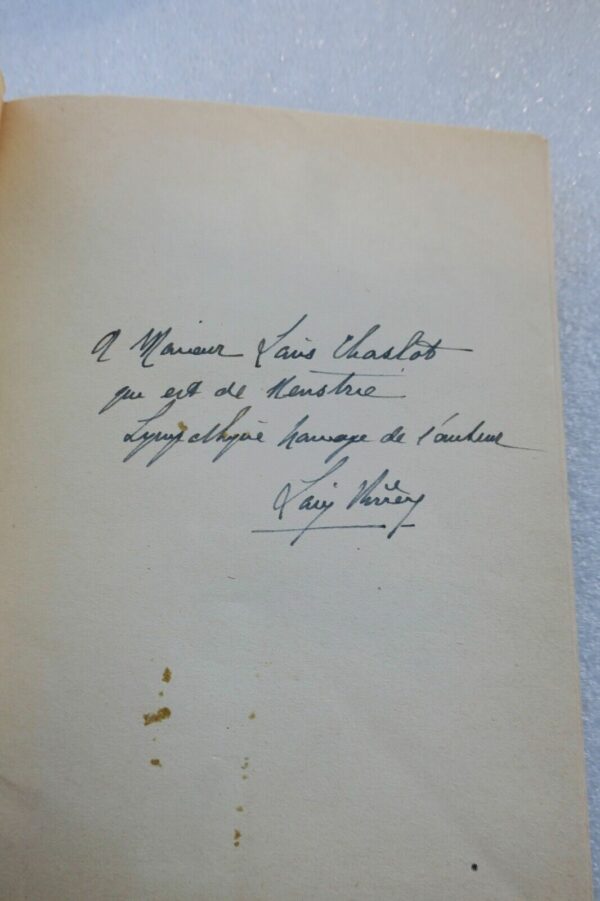 A Monsieur Louis Chaslot
qui est de
Sympathique hommage de l'auteur
Louis